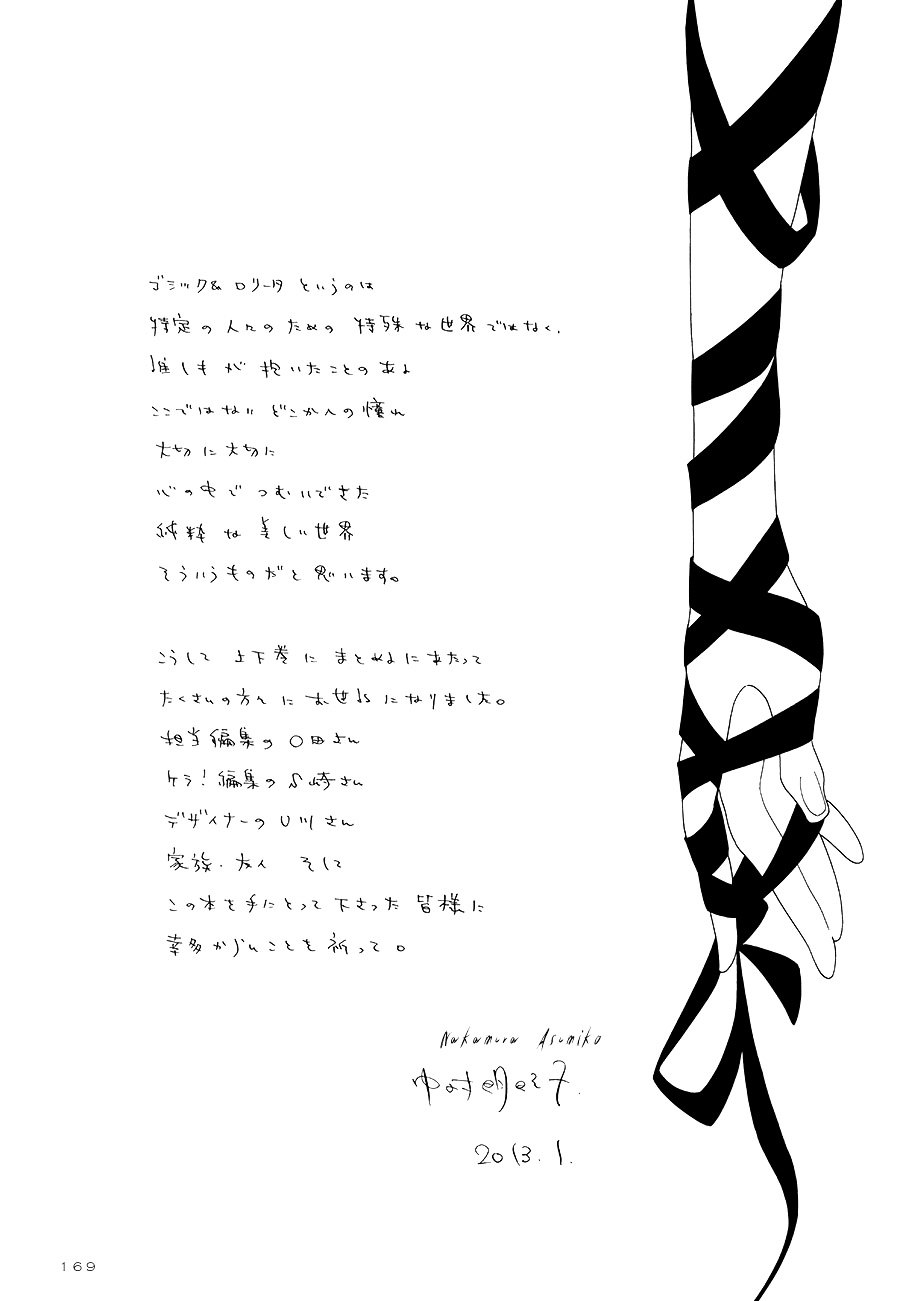 ゴシック&ロリータというのは
特定の人々のための 特殊な世界ではなく、
誰しもが 抱いたことのある
ここではない どこかへの憧れ
大切に大切に
心の中で つむいできた
純粋な 美しい世界
そういうものだと 思います。
こうして 上下巻に まとめるにあたって
たくさんの方々に お世話になりました。
担当編集の 〇田さん
ケラ!編集の S崎さん
デザイナーの U川さん
家族・友人 そして
この本を手にとって下さった 皆様に
幸多からんことを祈って。
Nakamura Asumiko
中村明日美子.
2013.1.
169